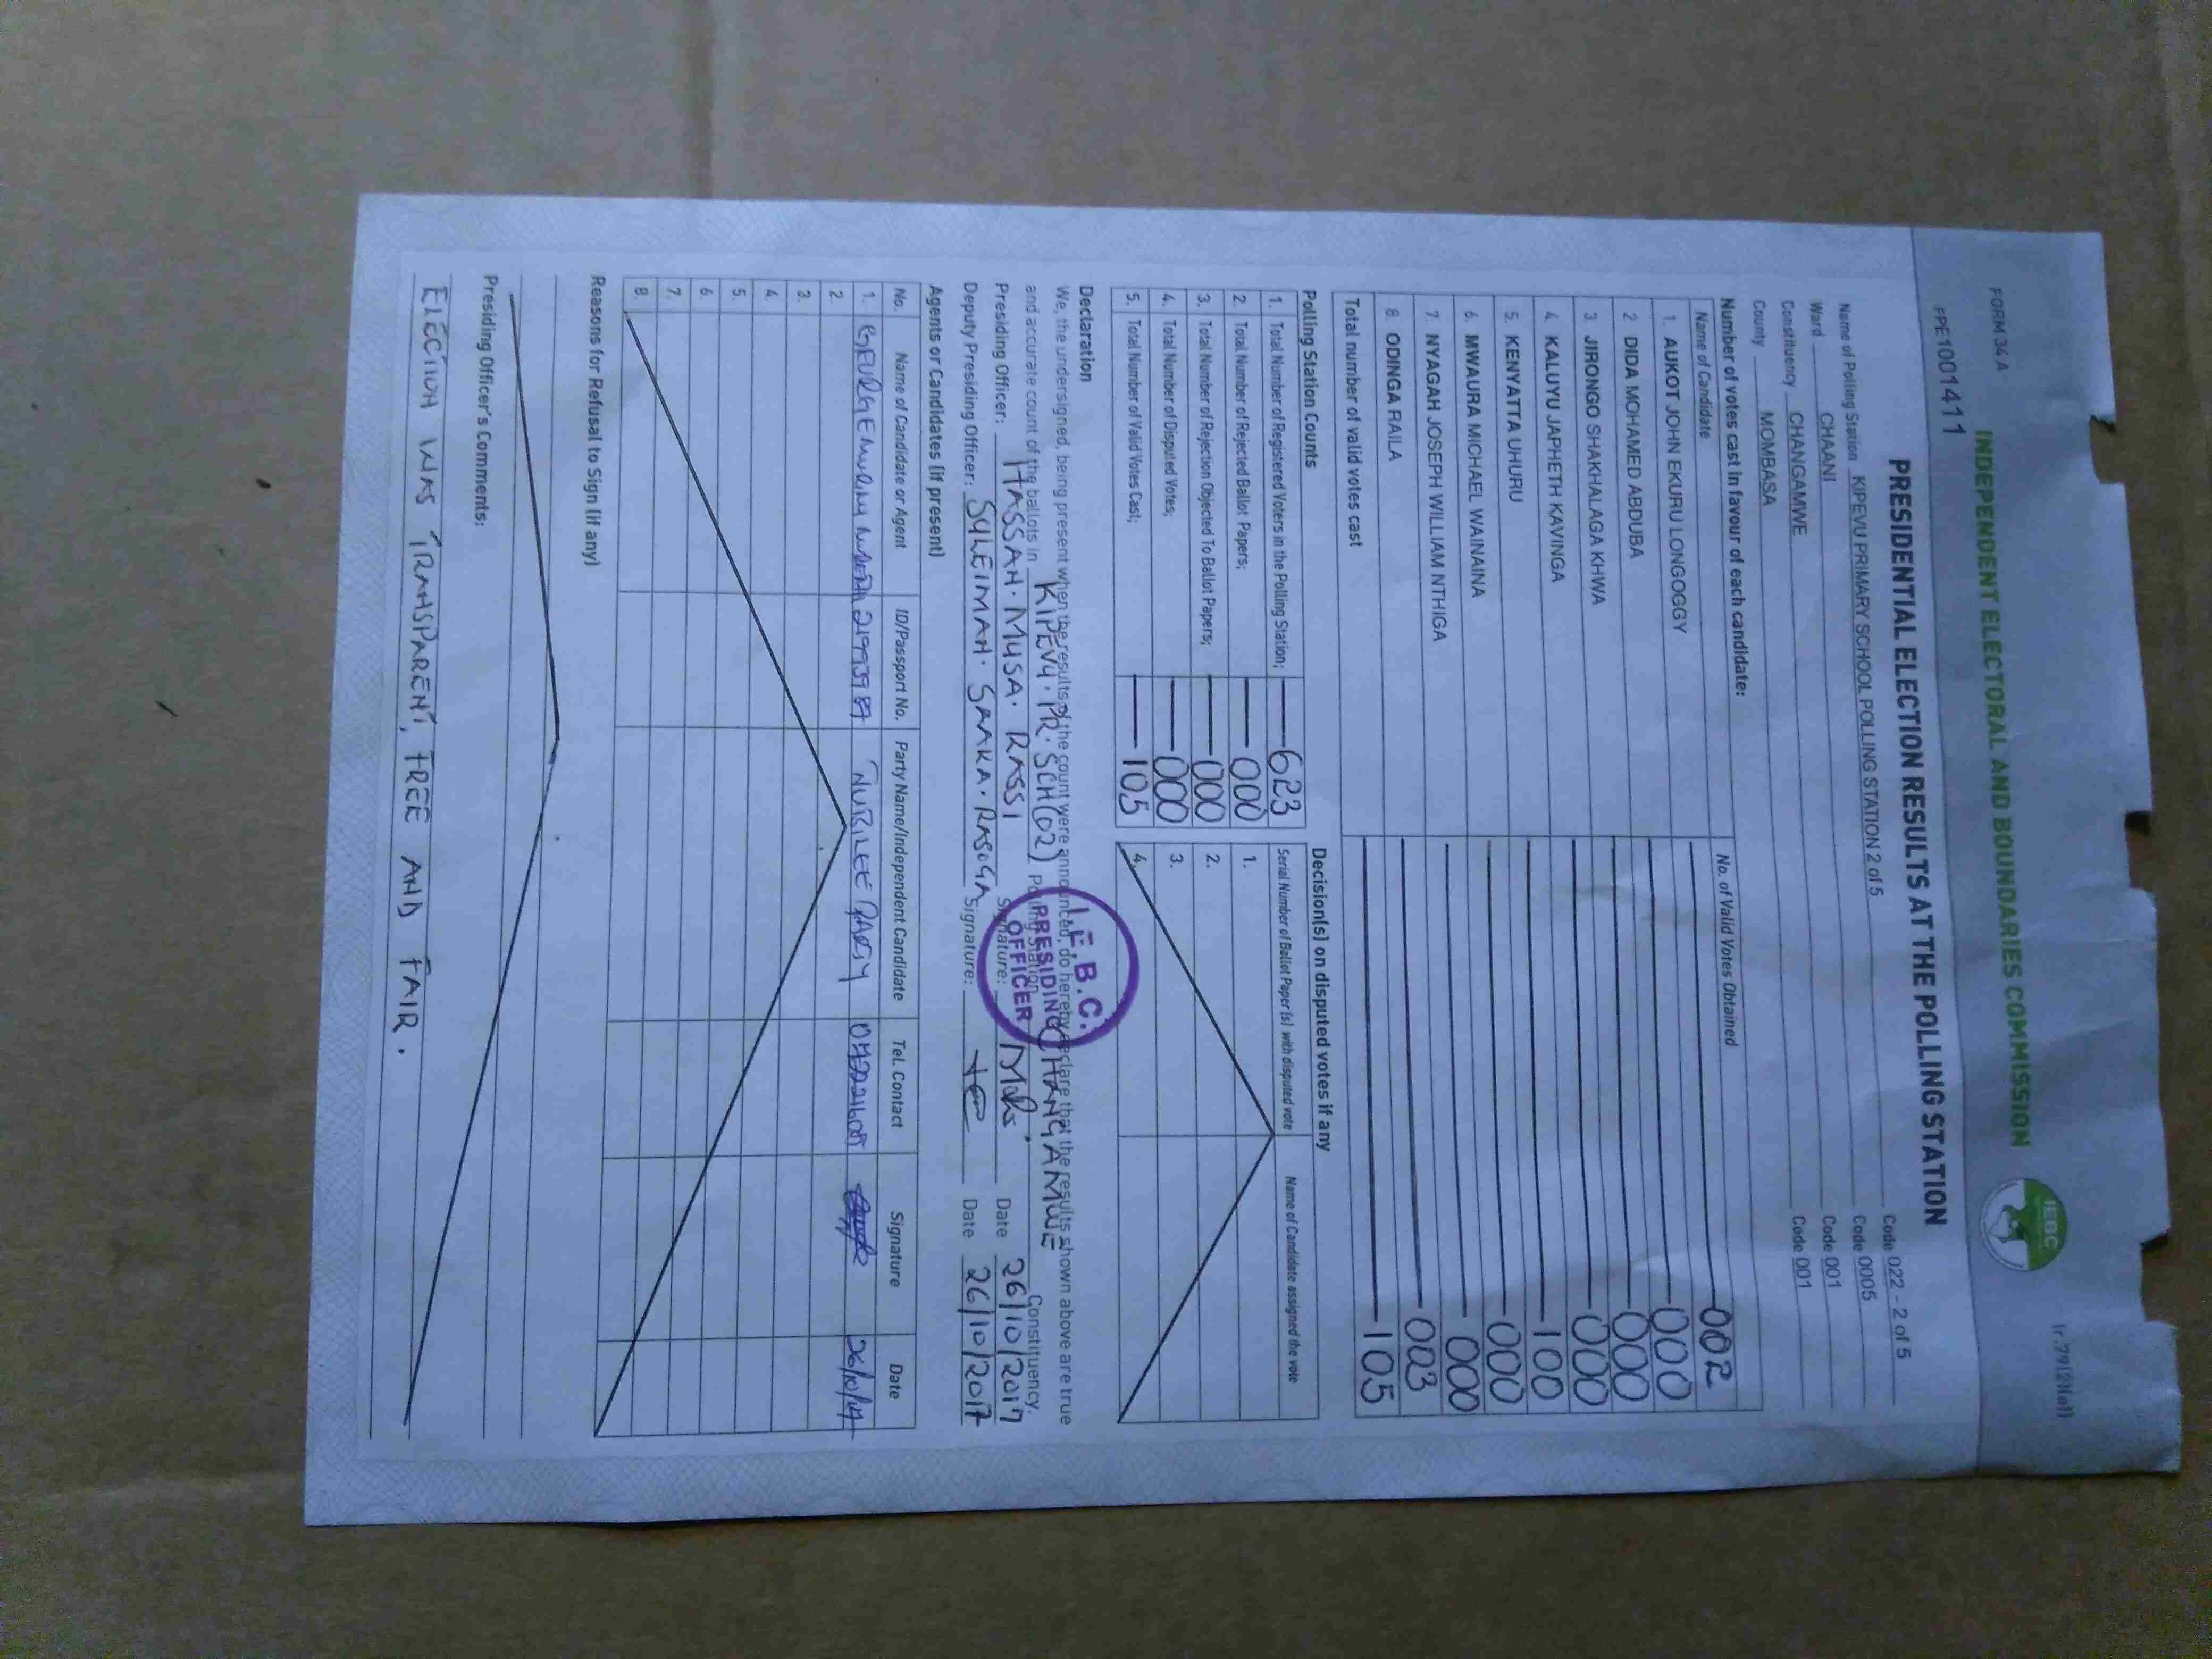 FORM 34A
(r.79(2)(a))
INDEPENDENT ELECTORAL AND BOUNDARIES COMMISSION
IEBC
FPE1001411
PRESIDENTIAL ELECTION RESULTS AT THE POLLING STATION
Name of Polling Station KIPEVU PRIMARY SCHOOL POLLING STATION 2 of 5 Code 022 - 2 of 5
Ward CHAANI Code 0005
Constituency CHANGAMWE Code 001
County MOMBASA Code 001
Number of votes cast in favour of each candidate:
Name of Candidate No. of Valid Votes Obtained
1. AUKOT JOHN EKURU LONGOGGY 002
2 DIDA MOHAMED ABDUBA 000
3. JIRONGO SHAKHALAGA KHWA 000
4. KALUYU JAPHETH KAVINGA 000
5. KENYATTA UHURU 100
6. MWAURA MICHAEL WAINAINA 000
7. NYAGAH JOSEPH WILLIAM NTHIGA 000
8. ODINGA RAILA 003
Total number of valid votes cast 105
Polling Station Counts
1. Total Number of Registered Voters in the Polling Station; 623
2. Total Number of Rejected Ballot Papers; 000
3. Total Number of Rejection Objected To Ballot Papers; 000
4. Total Number of Disputed Votes; 000
5. Total Number of Valid Votes Cast; 105
Decision(s) on disputed votes if any
Serial Number of Ballot Paper (s) with disputed vote Name of Candidate assigned the vote
1.
2.
3.
4.
Declaration
We, the undersigned, being present when the results of the count were announced, do hereby declare that the results shown above are true
and accurate count of the ballots in KIPEVU. PR. SCH (02) Polling Station CHANGAMWE Constituency.
Presiding Officer: HASSAN. MUSA. RASSI Signature: Date 26/10/2017
Deputy Presiding Officer: SULEIMAN. SAAKA. RASOGA Signature: Date 26/10/2017
I.E.B.C.
PRESIDING
OFFICER
Agents or Candidates (if present)
No. Name of Candidate or Agent ID/Passport No. Party Name/Independent Candidate Tel. Contact Signature Date
1. GEORGE JUBILEE PARTY 26/10/17
2.
3.
4.
5.
6.
7.
8.
Reasons for Refusal to Sign (if any)
Presiding Officer's Comments:
ELECTION WAS TRANSPARENT, FREE AND FAIR.